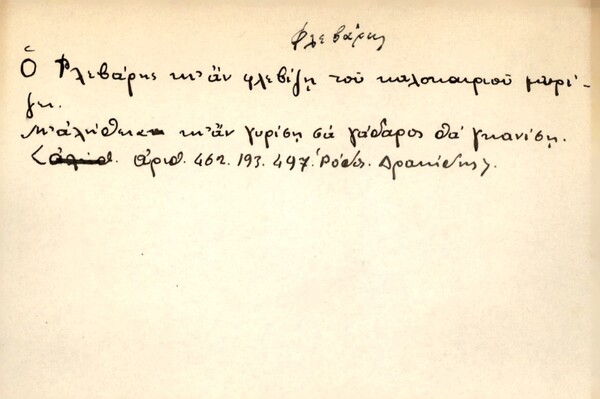 Φλεβάρης
Ὁ Φλεβάρης κι' ἂν φλεβίζῃ τοῦ καλοκαιριοῦ μυρί-
ζει.
Μ' ἀλήθεια κι' ἂν γυρίσῃ σὰ γάδαρος θὰ γκανίσῃ.
ἀριθ. 462. 193. 497. Ῥόδος. Δρακίδης).